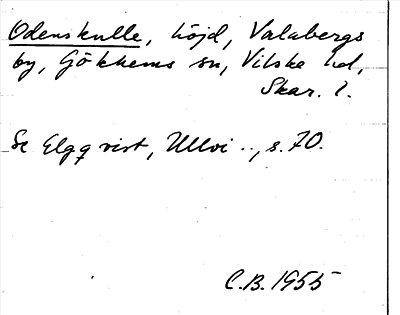 Odenskulle, höjd, Valabergs
by, Gökhems sn, Vilske hd,
Skar. l.
Se Elgqvist, Ullvi .., s. 70.
C.B. 1955